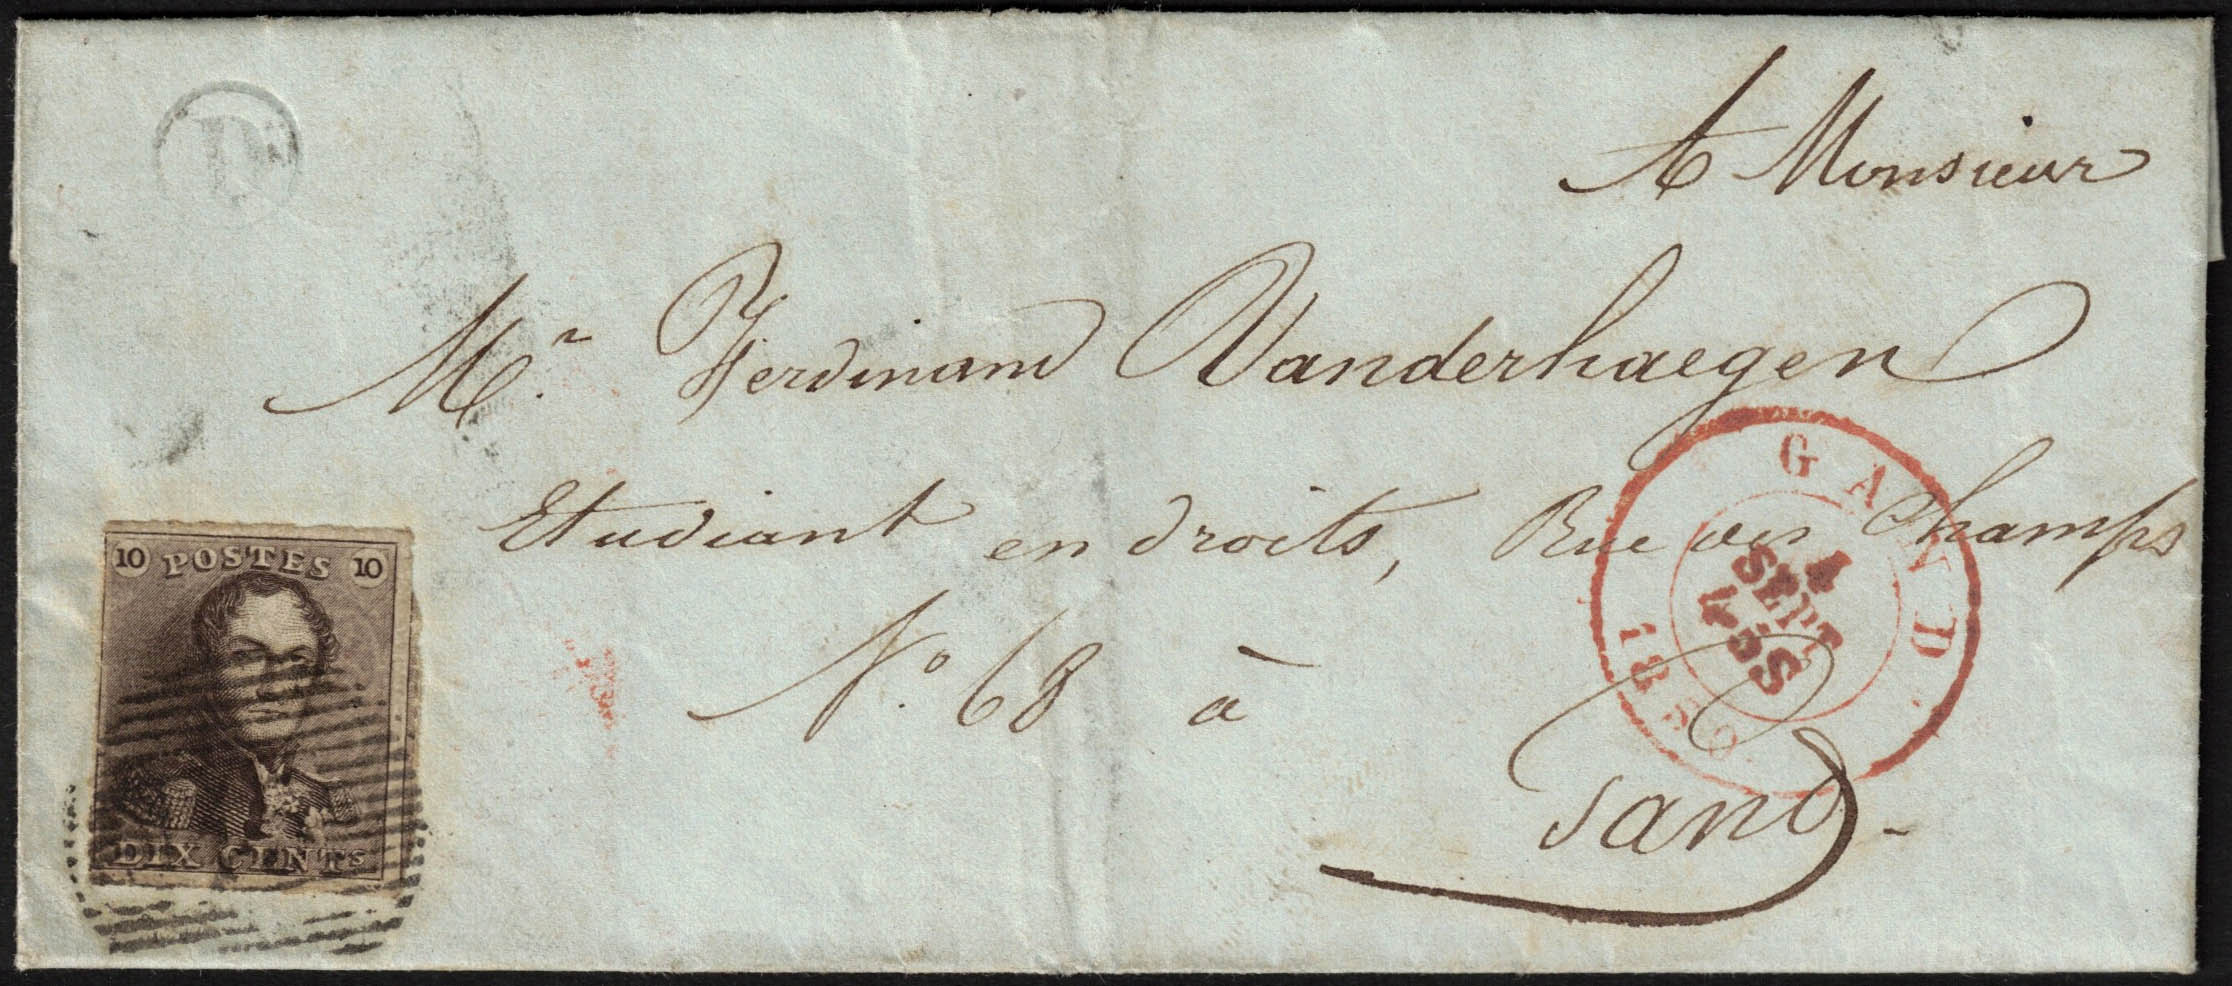 D
A Monsieur
Mr. Ferdinand Vanderhaegen
Etudiant en droits, Rue des Champs
No. 68 à
Gand.
10 POSTES 10
DIX CENTS
GAND
4
SEPT
4-5S
1850